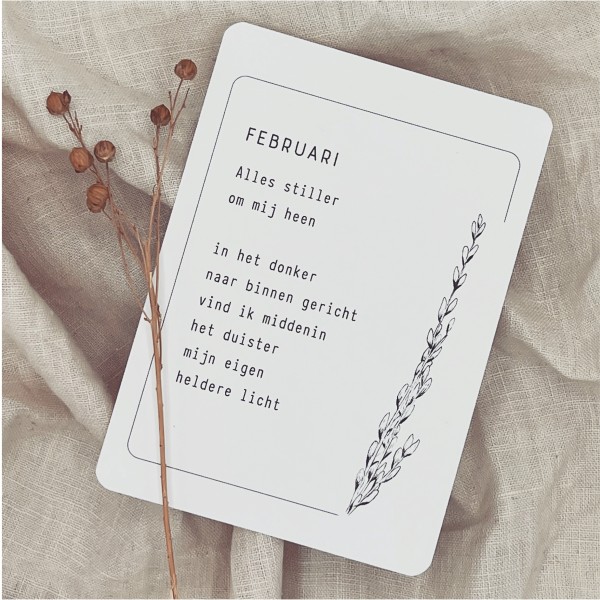 FEBRUARI
Alles stiller
om mij heen
in het donker
naar binnen gericht
vind ik middenin
het duister
mijn eigen
heldere licht